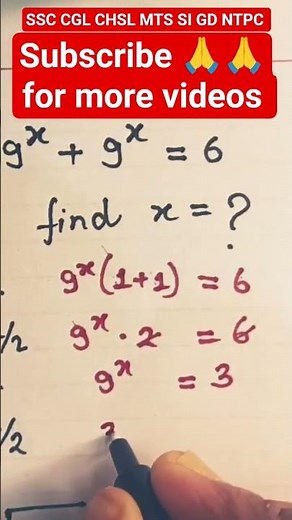 SSC CGL CHSL MTS SI GD NTPC
Subscribe 🙏 🙏
for more videos
9ˣ + 9ˣ = 6
find x = ?
9ˣ(1+1) = 6
/2 9ˣ · 2 = 6
9ˣ = 3
/2 3